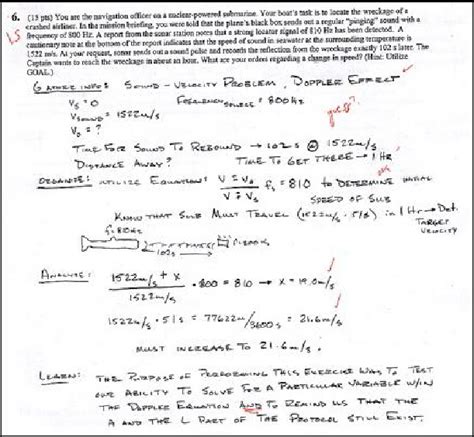 6. (15 pts) You are the navigation officer on a nuclear-powered submarine. Your boat's task is to locate the wreckage of a
crashed airliner. In the mission briefing, you were told that the plane's black box sends out a regular "pinging" sound with a
frequency of 800 Hz. A report from the sonar station notes that a strong locator signal of 810 Hz has been detected. A
cautionary note at the bottom of the report indicates that the speed of sound in seawater at the surrounding temperature is
1522 m/s. At your request, sonar sends out a sound pulse and records the reflection from the wreckage exactly 102 s later. The
Captain wants to reach the wreckage in about an hour. What are your orders regarding a change in speed? (Hint: Utilize
GOAL.)
15
GATHER INFO: SOUND - VELOCITY PROBLEM, DOPPLER EFFECT
Vs = 0 FREQUENCY SOURCE = 800 Hz
VSOUND = 1522 m/s
Vo = ?
guess?
TIME FOR SOUND TO REBOUND → 102 s @ 1522 m/s
DISTANCE AWAY? TIME TO GET THERE → 1 HR
ORGANIZE: UTILIZE EQUATION: V ± Vo / V ∓ Vs fs = 810 to DETERMINE INITIAL
SPEED OF SUB
KNOW THAT SUB MUST TRAVEL (1522 m/s · 51 s) in 1 Hr → Det.
TARGET
VELOCITY
f = 810 Hz
102 s
ANALYZE: 1522 m/s + x / 1522 m/s · 800 = 810 → x = 19.0 m/s
1522 m/s · 51 s = 77622 m / 3600 s = 21.6 m/s
MUST INCREASE TO 21.6 m/s.
LEARN: THE PURPOSE OF PERFORMING THIS EXERCISE WAS TO TEST
OUR ABILITY TO SOLVE FOR A PARTICULAR VARIABLE W/IN
THE DOPPLER EQUATION AND TO REMIND US THAT THE
A AND THE L PART OF THE PROTOCOL STILL EXIST.